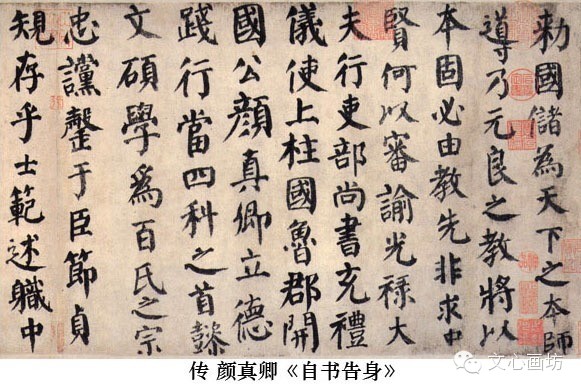 勅國儲為天下之本師
導乃元良之教將以
本固必由教先非求忠
賢何以審諭光祿大
夫行吏部尚書充禮
儀使上柱國魯郡開
國公顏真卿立德
踐行當四科之首懿
文碩學為百氏之宗
忠讜罄于臣節貞
規存乎士範述職中
传 颜真卿《自书告身》
文心画坊